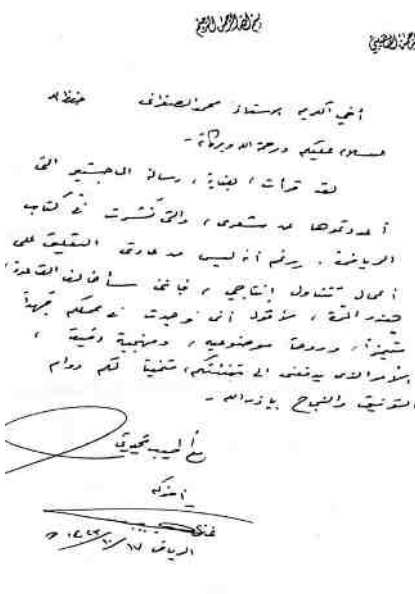 بسم الله الرحمن الرحيم
أخي الكريم الاستاذ محمد الصفراني حفظه الله
السلام عليكم ورحمة الله وبركاته -
لقد قرأت، بعناية، رسالة الماجستير التي
أعددتموها عن شعري، والتي نشرت في كتاب
الرياض. ورغم أنه ليس من عادتي التعليق على
أعمال تتناول إنتاجي، فإنني سأخالف القاعدة
هذه المرة، لأقول أنني وجدت في عملكم جهداً
متميزاً، وروحاً موضوعية، ومنهجية دقيقة،
الأمر الذي يدفعني الى تهنئتكم، متمنياً لكم دوام
التوفيق والنجاح بإذن الله -
مع أطيب تحياتي
الرياض